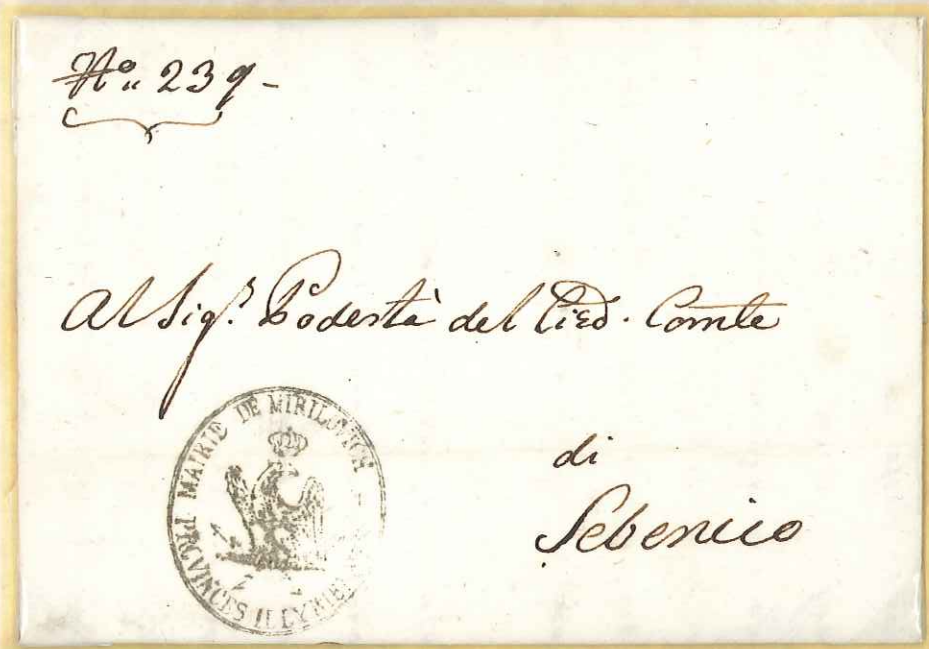 No. 239-
Al Sigr. Podestà del Cied. Comte
di
Sebenico
MAIRIE DE MIRILOVICH
PROVINCES ILLYRIENNES